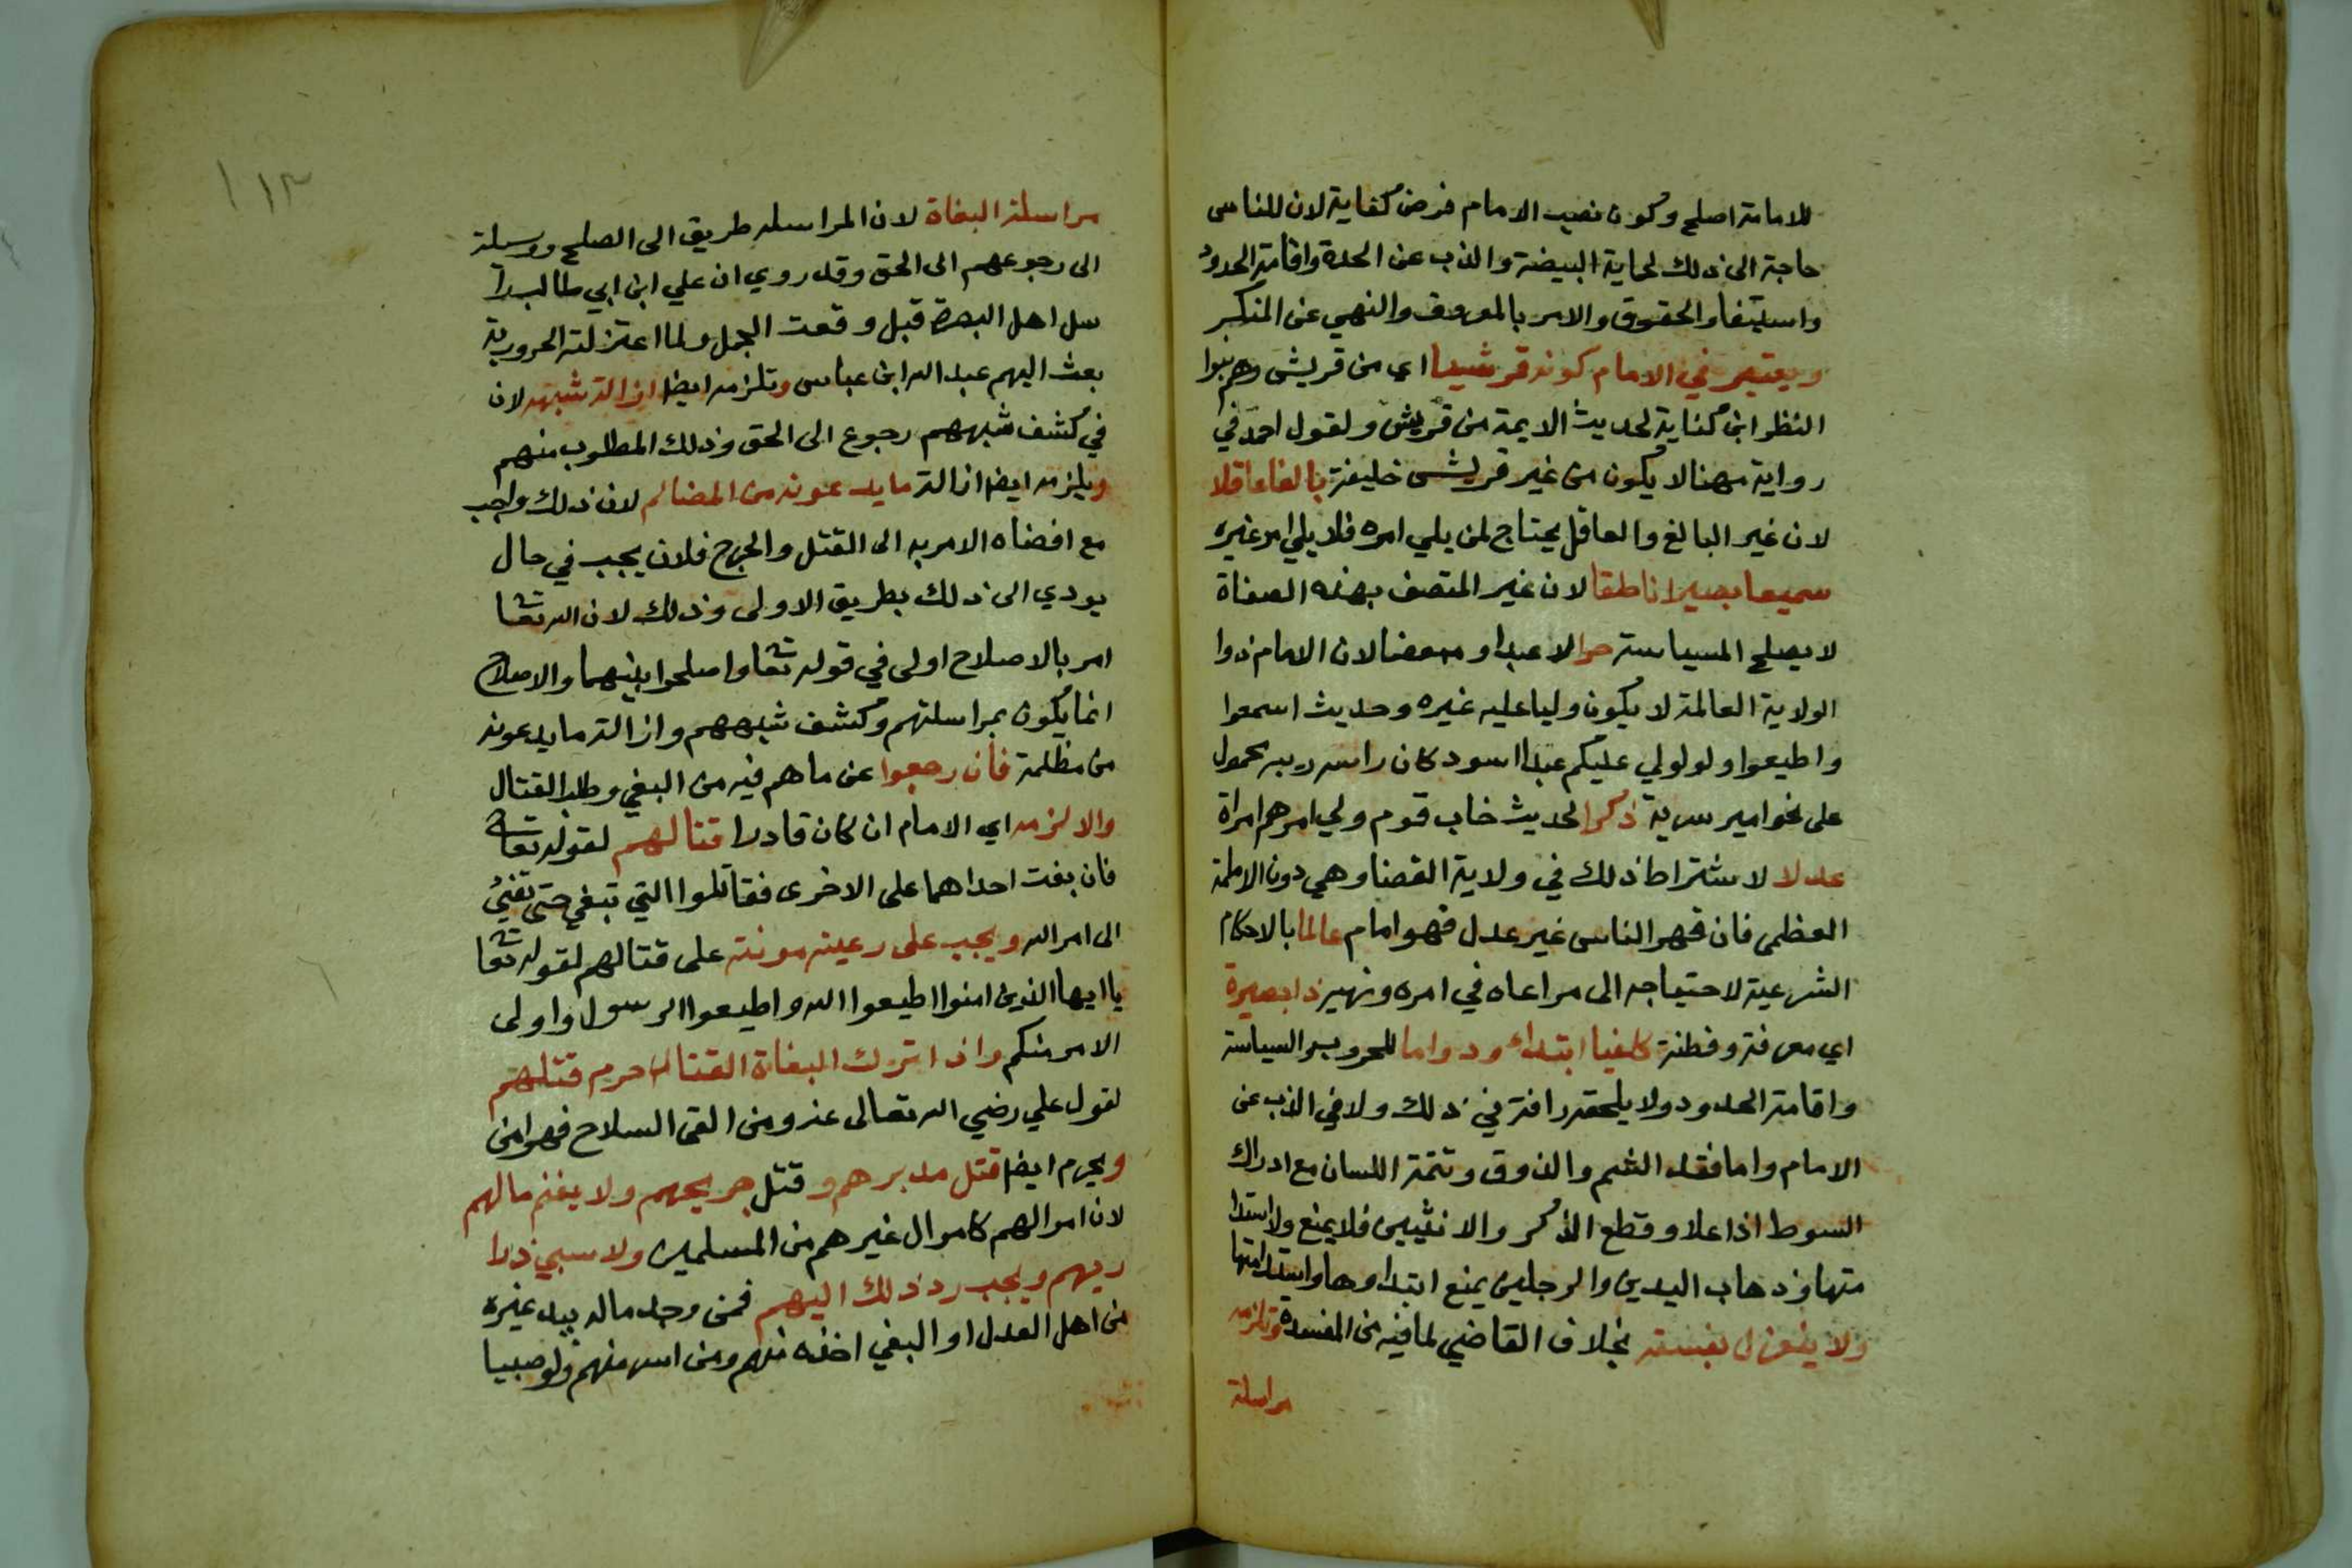 للامامة اصلح وكون نصب الامام فرض كفاية لان للناس
حاجة الى ذلك لحماية البيضة والذب عن الحدة واقامة الحدود
واستيفاء الحقوق والامر بالمعروف والنهي عن المنكر
ويعتبر في الامام كونه قرشيا اي من قريش وهم بنوا
النظر ابن كناية لحديث الايمة من قريش ولقول احمد في
رواية مهنا لا يكون من غير قريش خليفة بالغا عاقلا
لان غير البالغ والعاقل يحتاج لمن يلي امره فلا يلي امر غيره
سميعا بصيرا ناطقا لان غير المتصف بهذه الصفاة
لا يصلح المسياسة حرا لا عبدا و مبعضا لان الامام ذوا
الولاية العالمة لا يكون وليا عليه غيره وحديث اسمعوا
واطيعوا ولو لولي عليكم عبدا اسود كان راسه زبيبه محمول
على نحو امير سرية ذكرا لحديث خاب قوم ولي امرهم امراة
عدلا لاشتراط ذلك في ولاية القضا وهي دون الامامة
العظمى فان قهر الناس غير عدل فهو امام عالما بالاحكام
الشرعية لاحتياجه الى مراعاه في امره ونهيه ذا بصيرة
اي معرفة وفطنة كافيا ابتداء ودواما للحروب والسياسة
واقامة الحدود ولا يلحقه رافة في ذلك ولا في الذب عن
الامام واما فقد الشم والذوق وتتمة اللسان مع ادراك
السوط اذا علا وقطع الذكر والانثيين فلا يمنع ولا استدا
متها وذهاب اليدين والرجلين يمنع ابتداوها واستدامتها
ولا ينعزل بفسقه بخلاف القاضي لما فيه من المفسدة وتلزمه
مراسلة
١١٢
مراسلة البغاة لان المراسله طريق الى الصلح ووسيلة
الى رجوعهم الى الحق وقد روي ان علي ابن ابي طالب را
سل اهل البصرة قبل وقعت الجمل ولما اعتزلته الحرورية
بعث اليهم عبد الله ابن عباس وتلزمه ايضا ازالة شبهه لان
في كشف شبههم رجوع الى الحق وذلك المطلوب منهم
ويلزمه ايضا ازالة ما يدعونه من المضالم لان ذلك واجب
مع افضاه الامر به الى القتل والجرح فلان يجب في حال
يودي الى ذلك بطريق الاولى وذلك لان الله تعا
امر بالاصلاح اولى في قوله تعا واصلحوا بينهما والاصلاح
انما يكون بمراسلتهم وكشف شبههم وازالة ما يدعونه
من مظلمة فان رجعوا عن ما هم فيه من البغي وطلب القتال
والا لزمه اي الامام ان كان قادرا قتالهم لقوله تعا
فان بغت احداهما على الاخرى فقاتلوا التي تبغي حتى تفيئ
الى امر الله ويجب على رعيته مونته على قتالهم لقوله تعا
يا ايها الذين امنوا اطيعوا الله واطيعوا الرسول واولى
الامر منكم واذا ترك البغاة القتال حرم قتلهم
لقول علي رضي الله تعالى عنه ومن القى السلاح فهو امن
ويحرم ايضا قتل مدبرهم وقتل جريحهم ولا يغنم مالهم
لان اموالهم كاموال غيرهم من المسلمين ولا سبي ذرا
ريهم ويجب رد ذلك اليهم فمن وجد ماله بيد غيره
من اهل العدل او البغي اخذه منهم ومن اسر منهم ولو صبيا